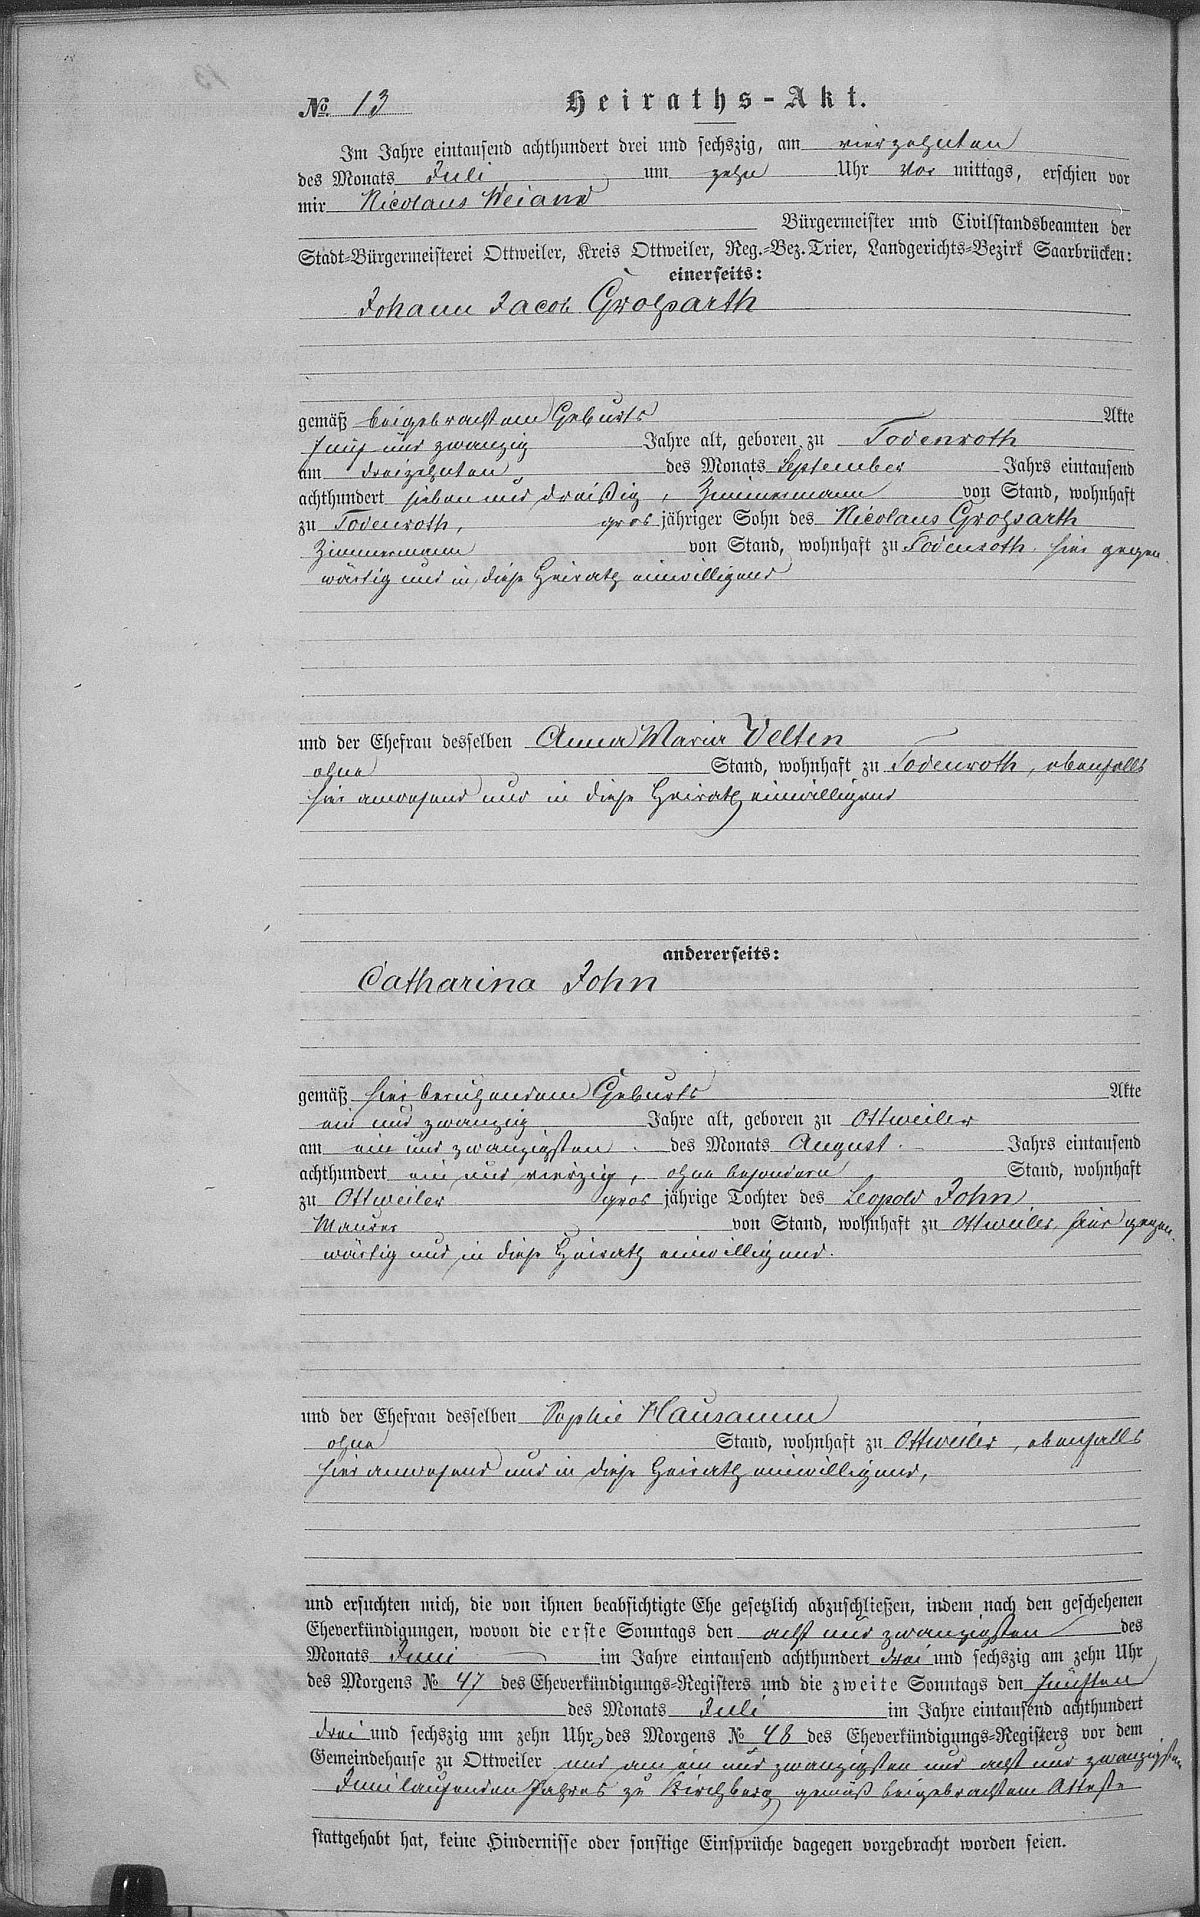 No. 13 Heiraths-Akt.
Im Jahre eintausend achthundert drei und sechszig, am vierzehnten
des Monats Juli um zehn Uhr Vor mittags, erschien vor
mir Nicolaus Weiand
Bürgermeister und Civilstandsbeamten der
Stadt-Bürgermeisterei Ottweiler, Kreis Ottweiler, Reg.-Bez. Trier, Landgerichts-Bezirk Saarbrücken:
einerseits:
Johann Jacob Großarth
gemäß beigebrachtem Geburts Akte
fünf und zwanzig Jahre alt, geboren zu Todenroth
am dreizehnten des Monats September Jahrs eintausend
achthundert sieben und dreißig, Zimmermann von Stand, wohnhaft
zu Todenroth, gros jähriger Sohn des Nicolaus Großarth
Zimmermann von Stand, wohnhaft zu Todenroth, hier gegen
wärtig und in diese Heirath einwilligend
und der Ehefrau desselben Anna Maria Velten
ohne Stand, wohnhaft zu Todenroth, ebenfalls
hier anwesend und in diese Heirath einwilligend
andererseits:
Catharina John
gemäß hier beruhendem Geburts Akte
ein und zwanzig Jahre alt, geboren zu Ottweiler
am ein und zwanzigsten des Monats August Jahrs eintausend
achthundert ein und vierzig, ohne besondern Stand, wohnhaft
zu Ottweiler gros jährige Tochter des Leopold John
Maurer von Stand, wohnhaft zu Ottweiler, hier gegen
wärtig und in diese Heirath einwilligend.
und der Ehefrau desselben Sophie Hausamm
ohne Stand, wohnhaft zu Ottweiler, ebenfalls
hier anwesend und in diese Heirath einwilligend,
und ersuchten mich, die von ihnen beabsichtigte Ehe gesetzlich abzuschließen, indem nach den geschehenen
Eheverkündigungen, wovon die erste Sonntags den acht und zwanzigsten des
Monats Juni im Jahre eintausend achthundert drei und sechszig am zehn Uhr
des Morgens No. 47 des Eheverkündigungs-Registers und die zweite Sonntags den fünften
des Monats Juli im Jahre eintausend achthundert
drei und sechszig um zehn Uhr des Morgens No. 48 des Eheverkündigungs-Registers vor dem
Gemeindehause zu Ottweiler und am ein und zwanzigsten und acht und zwanzigsten
Juni laufenden Jahres zu Kirchberg gemäß beigebrachtem Atteste
stattgehabt hat, keine Hindernisse oder sonstige Einsprüche dagegen vorgebracht worden seien.